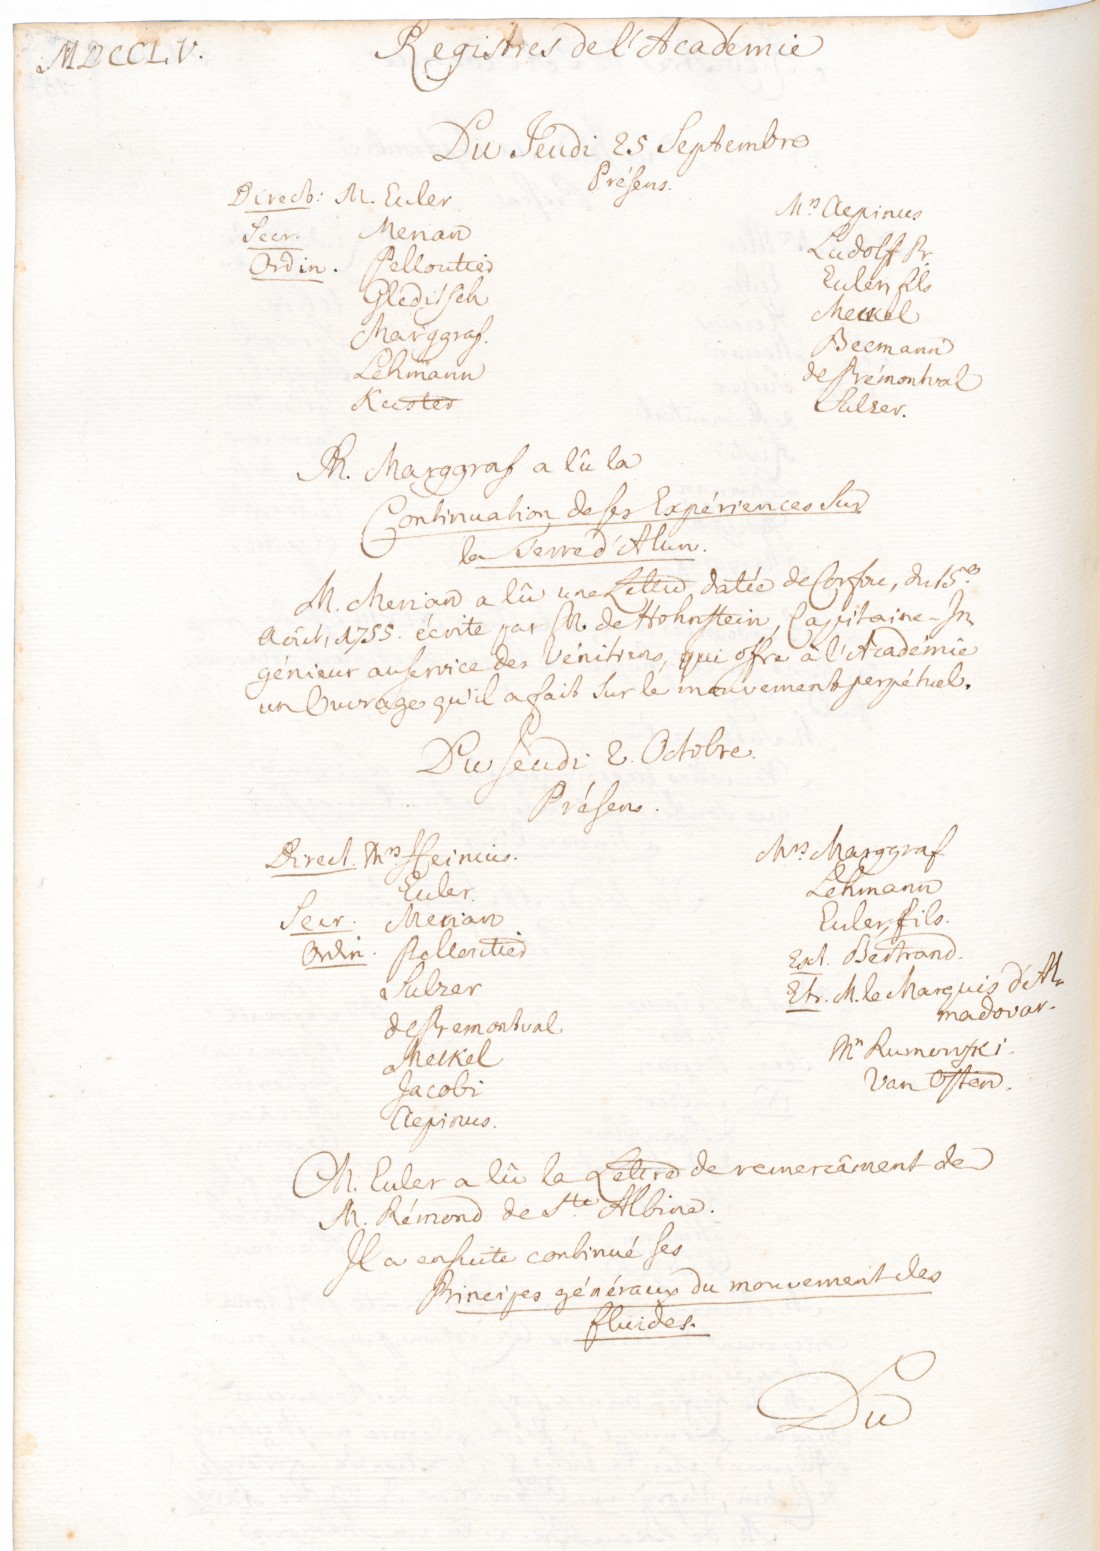 MDCCLV.
Registres de l'Académie
Du Jeudi 25 Septembre
Présens.
Direct: M. Euler
Secr. Merian
Ordin. Pelloutier
Gleditsch
Marggraf.
Lehmann
Kuster
Mrs Aepinus
Ludolff Pr.
Euler, fils
Meckel
Becmann
de Prémontval
Sulzer.
M. Marggraf a lû la
Continuation de ses Expériences sur
la Terre d'Alun.
M. Merian a lû une Lettre, datée de Corfou, du 15e
Août, 1755. écrite par M. de Hohnstein, Capitaine-In
génieur au service des Vénitiens, qui offre à l'Académie
un Ouvrage qu'il a fait sur le mouvement perpétuel.
Du Jeudi 2. Octobre.
Présens.
Direct. Mrs Heinius.
Euler.
Secr. Merian
Ordin. Pelloutier
Sulzer
de Premontval
Meckel
Jacobi
Aepinus.
Mrs Marggraf
Lehmann
Euler, fils.
Ext. Bertrand.
Etr. M. le Marquis d'Al-
madovar.
Mrs Rumowski.
Van Osten.
M. Euler a lû la Lettre de remercîment de
M. Rémond de Ste Albine.
Il a ensuite continué ses
Principes généraux du mouvement des
fluides.
Du